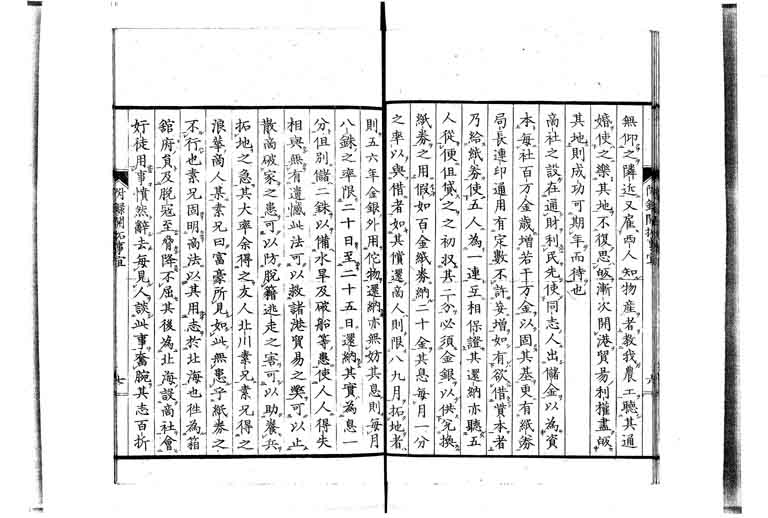 無仰之隣近又雇西人知物産者教我農工聽其通
婚使之樂其地不復思皈漸次開港貿易利權盡皈
其地則成功可期年而待也
商社之設在通財利民先使同志人出儲金以為資
本每社百万金歳増若干万金以固其基更有紙劵
局長連印通用有定數不許妄増如有欲借貸本者
乃給紙劵使五人為一連互相保證其還納亦聽五
人從便俱貸之之初收其二分必須金銀以供兌換
紙劵之用假如百金紙劵納二十金其息每月一分
之率以與借者如其償還商人則限八九月拓地者
則五六年金銀外用佗物還納亦無妨其息則每月
八銖之率限二十日至二十五日還納其實為息一
分但別儲二銖以備水旱及破船等患使人人得失
相與無有遺憾此法可以救諸港貿易之弊可以止
散商破家之患可以防脱籍逃走之害可以助養兵
拓地之急其大率余得之友人北川素兄素兄得之
浪華商人某素兄曰富豪所見如此無患乎紙劵之
不行也素兄固明商法以其用志於北海也徃為箱
舘府貟及脱冦至脅降不屈其後為北海設商社會
奸徒用事憤然辭去每見人談此事奮腕其志百折